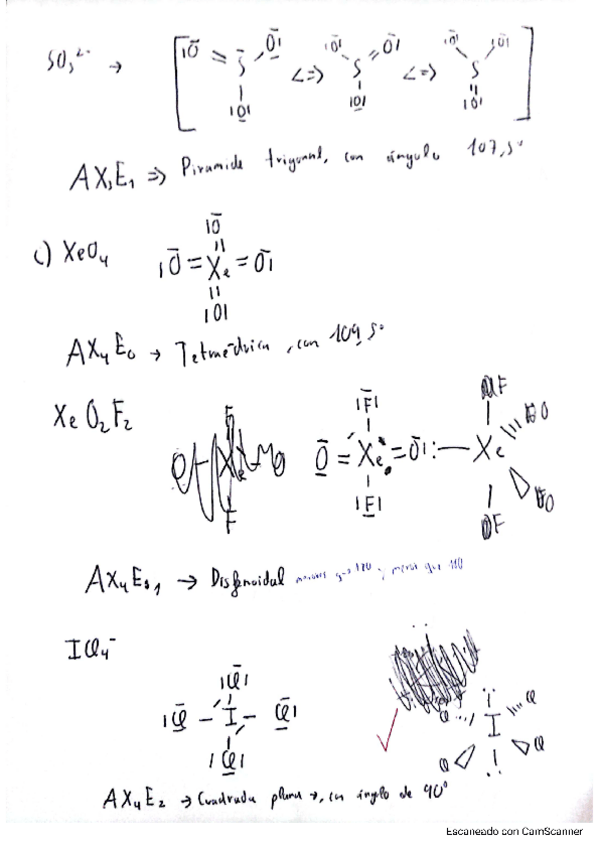 SO₃²⁻ → [ |Ō = S̄ - Ō| <=> |Ō| - S = Ō| <=> |Ō| - S - |Ō| ]
|O| |O| |O|
AX₃E₁ => Piramide trigonal, con ángulo 107,5°
c) XeO₄
|Ō
|Ō = Xe = Ō|
|O|
AX₄E₀ → Tetraédrica, con 109,5°
XeO₂F₂
F
Xe
F
|F̄|
Ō = Xe = Ō| : — Xe
|F|
F
O
O
F
AX₄E₁ → Disfenoidal menores que 120 y menor que 180
ICl₄⁻
|Cl|
|Cl - I - Cl|
|Cl|
Cl I Cl
Cl Cl
AX₄E₂ → Cuadrada plana →, con ángulo de 90°
Escaneado con CamScanner